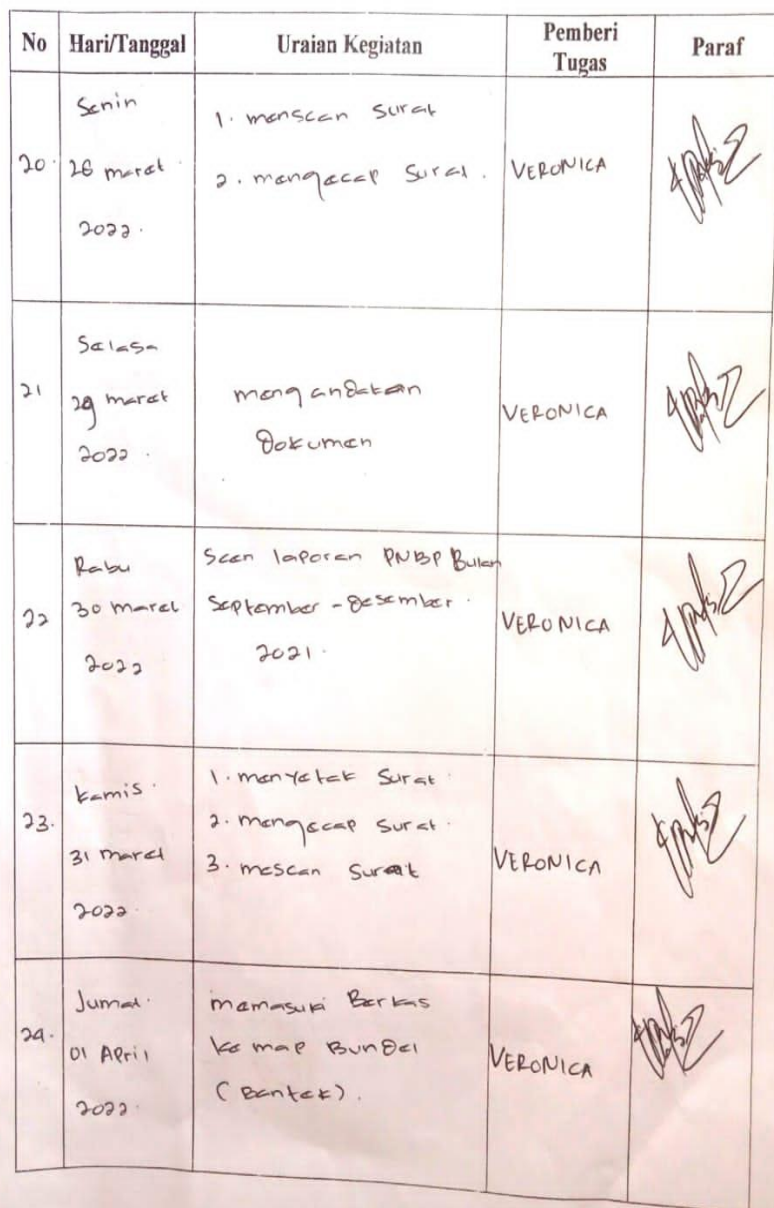 No Hari/Tanggal Uraian Kegiatan Pemberi Tugas Paraf
20. Senin
28 maret
2022.
1. menscan surat
2. mengecap surat.
VERONICA
21 Selasa
29 maret
2022.
mengandakan
Dokumen
VERONICA
22 Rabu
30 maret
2022
Scan laporan PNBP Bulan
September - Desember.
2021.
VERONICA
23. kamis.
31 maret
2022
1. menyetak surat.
2. mengecap surat.
3. mescan surat
VERONICA
24. Jumat.
01 April
2022.
memasuki Berkas
ke map Bundel
(Bantek).
VERONICA